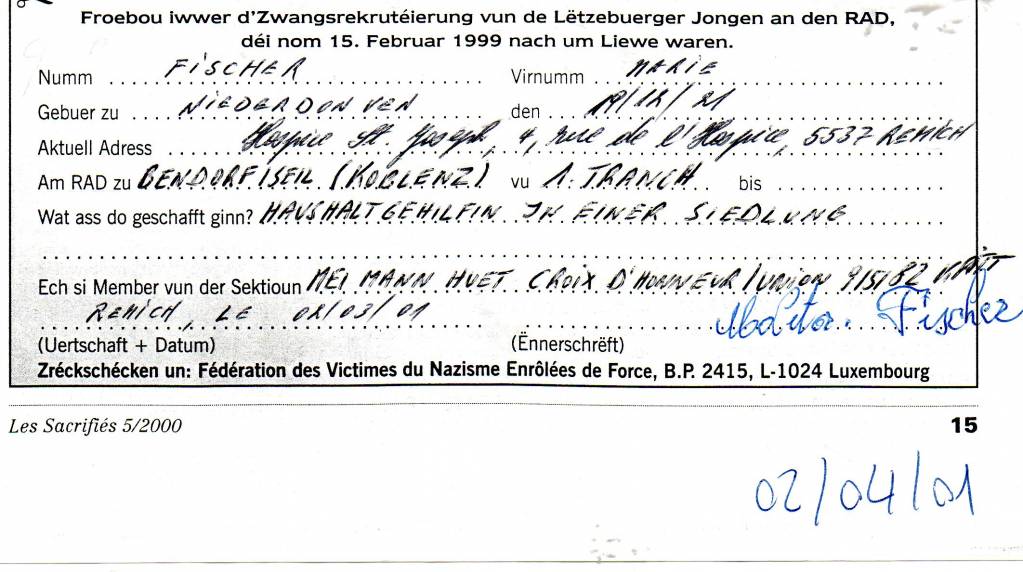 Froebou iwwer d'Zwangsrekrutéierung vun de Lëtzebuerger Jongen an den RAD,
déi nom 15. Februar 1999 nach um Liewe waren.
Numm FISCHER Virnumm MARIE
Gebuer zu NIEDERDONVEN den 19/12/21
Aktuell Adress Hospice St. Joseph, 4, rue de l'Hospice, 5537 REMICH
Am RAD zu BENDORF/SEIL (KOBLENZ) vu 1. TRANCH bis
Wat ass do geschafft ginn? HAUSHALTGEHILFIN IN EINER SIEDLUNG
Ech si Member vun der Sektioun MEI MANN HUET CROIX D'HONNEUR/UNION 9/5/82
REMICH, LE 02/03/01 Fischer
(Uertschaft + Datum) (Ënnerschrëft)
Zréckschécken un: Fédération des Victimes du Nazisme Enrôlées de Force, B.P. 2415, L-1024 Luxembourg
Les Sacrifiés 5/2000 15
02/04/01